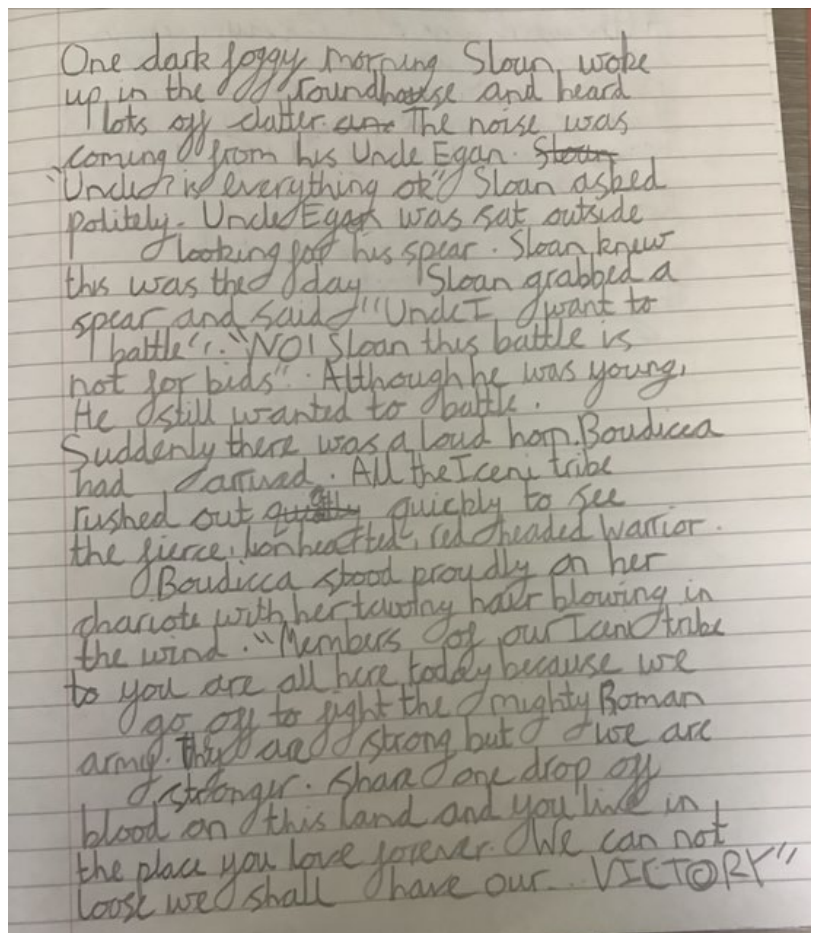 One dark foggy morning Sloan woke
up in the roundhouse and heard
lots off clatter. The noise was
coming from his Uncle Egan. Sloan
"Uncle is everything ok" Sloan asked
politely. Uncle Egan was sat outside
looking for his spear. Sloan knew
this was the day Sloan grabbed a
spear and said "Uncle I want to
battle". "NO! Sloan this battle is
not for bids". Although he was young,
He still wanted to battle.
Suddenly there was a loud horn. Boudicca
had arrived. All the Iceni tribe
rushed out quickly to see
the fierce, lionhearted, red headed warrior.
Boudicca stood proudly on her
chariote with her tawny hair blowing in
the wind. "Members of our Iceni tribe
to you are all here today because we
go off to fight the mighty Roman
army. They are strong but we are
stronger. one drop off
blood on this land and you live in
the place you love forever. We can not
loose we shall have our... VICTORY"